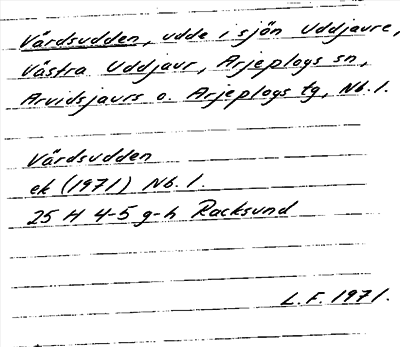 Värdsudden, udde i sjön Uddjaure,
Västra Uddjaur, Arjeplogs sn,
Arvidsjaurs o. Arjeplogs tg, Nb. l.
Värdsudden
ek (1971) Nb. l.
25 H 4-5 g-h Racksund
L. F. 1971.